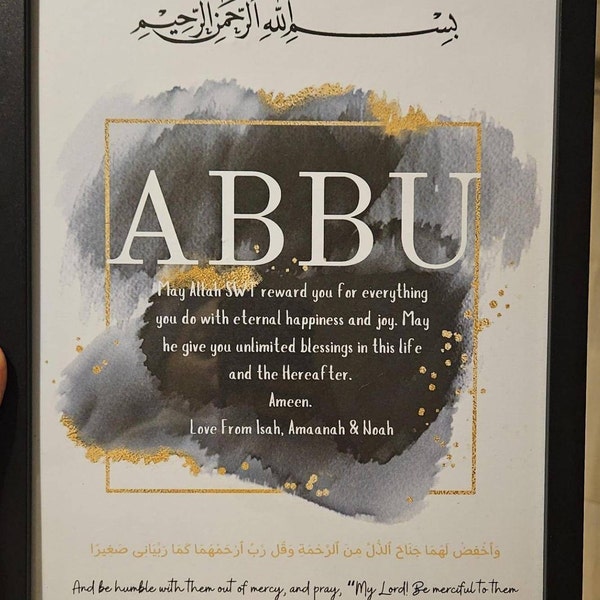 بِسْمِ اللهِ الرَّحْمَنِ الرَّحِيمِ
ABBU
May Allah SWT reward you for everything
you do with eternal happiness and joy. May
he give you unlimited blessings in this life
and the Hereafter.
Ameen.
Love From Isah, Amaanah & Noah
وَاَخْفِضْ لَهُمَا جَنَاحَ الذُّلِّ مِنَ الرَّحْمَةِ وَقُلْ رَبِّ ارْحَمْهُمَا كَمَا رَبَّيَانِى صَغِيرًا
And be humble with them out of mercy, and pray, “My Lord! Be merciful to them